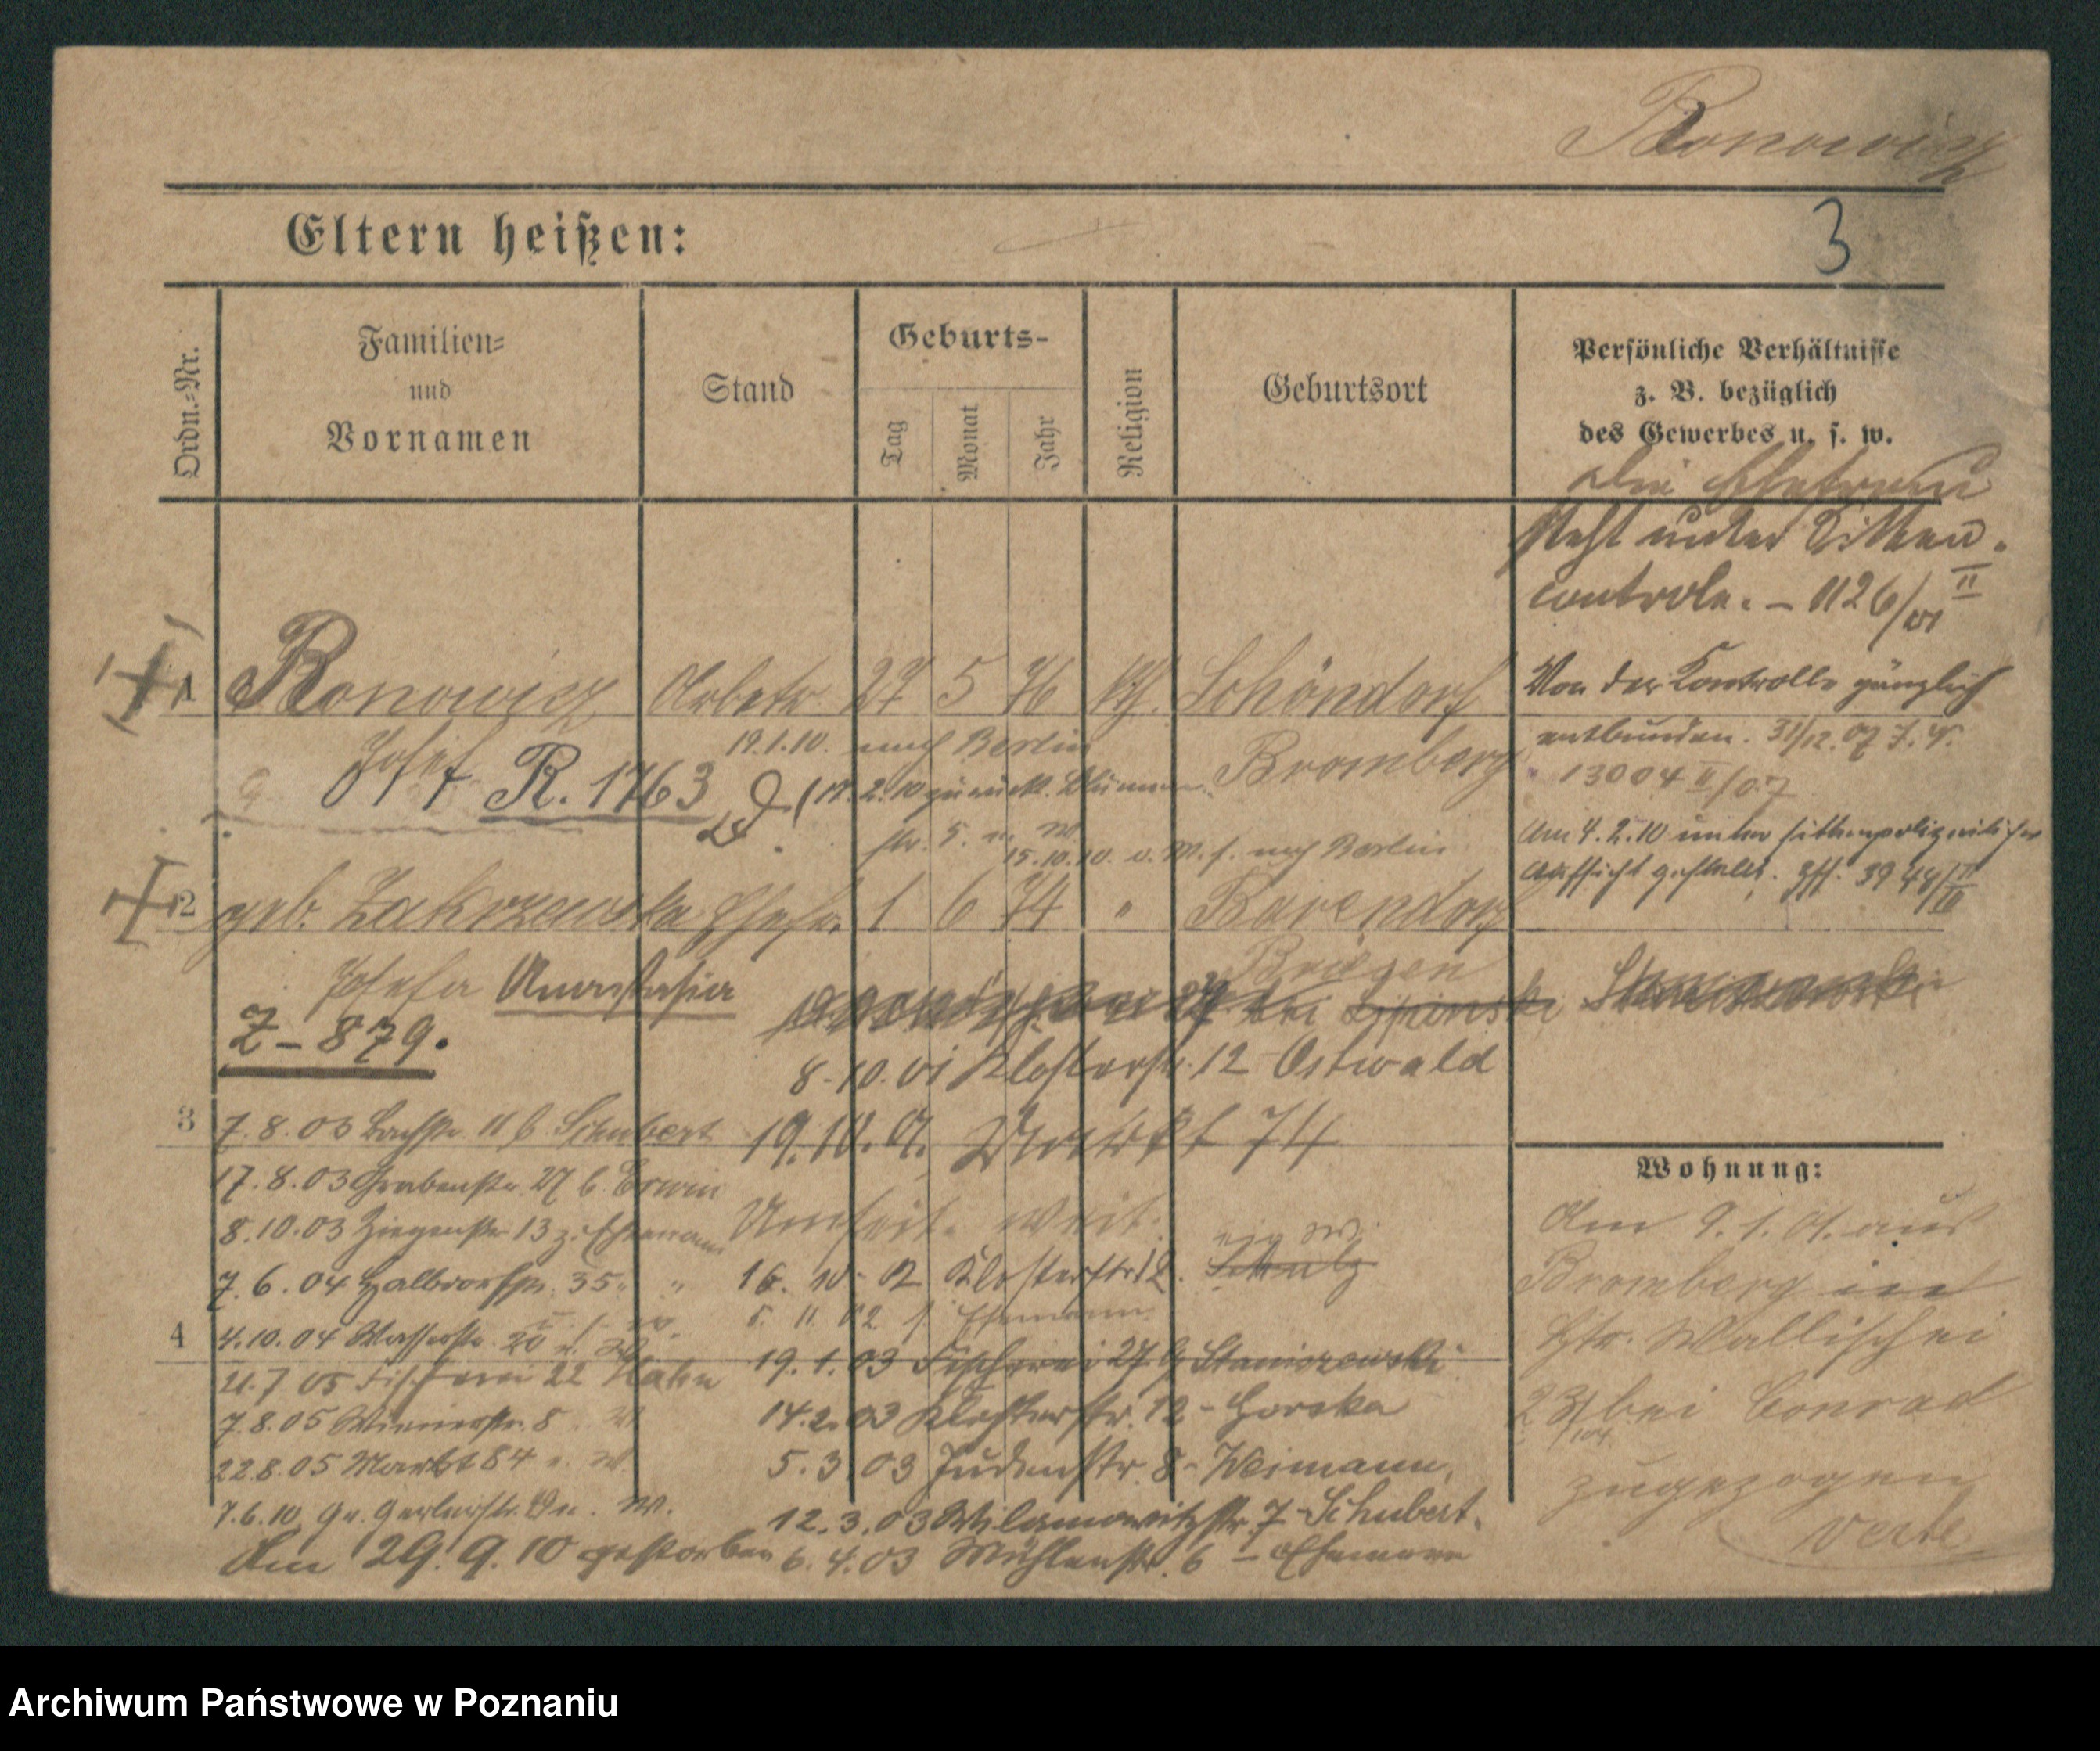 Ronowicz
Eltern heißen:
3
Ordn.-Nr.
Familien-
und
Vornamen
Stand
Geburts-
Tag
Monat
Jahr
Religion
Geburtsort
Persönliche Verhältnisse
z. B. bezüglich
des Gewerbes u. s. w.
Die Ehefrau
steht unter Sitten-
controle. – 1126/01 II
Von der Kontrolle gänzlich
entbunden. 31/12. 07
13004 II/07
Am 4. 2. 10 unter sittenpolizeilicher
Aufsicht gestellt. 39 44/II
1 Ronowicz Arbeiter 27 5 76 kth. Schöndorf
Josef R. 1763
19.1.10. nach Berlin
Bromberg
2. 10 zurück.
str. 5. u. W
15.10.10. v. W. f. nach Berlin
2 geb. Zakrzewska Ehefr. 1 6 74 " Barendorf
Josefa Anastasia
Briesen
bei Lipinski
Z – 879.
8.10.01 Klosterstr. 12 Ostwald
3 7.8.03 Schubert
19.10.01. Markt 74
17.8.03 Grabenstr. 27 b. Erwin
8.10.03 Ziegenstr. 13 z. Ehemann
7.6.04 Halbdorfstr. 35 " "
16. 10. 02 Klosterstr. 12. Schulz
5. 11. 02 z. Ehemann
4 4.10.04 Wasserstr. 20
19.1.03 Fischerei 27 b Staniszewski
21.7.05 Fischerei 22 Hahn
14.2.03 Klosterstr. 12 – Gorska
7.8.05 Wienerstr. 8
5.3.03 Judenstr. 8 – Weimann,
22.8.05 Markt 84 u. W
7.6.10 Gr. Gerberstr. W.
12.3.03 Wilamowitzstr. 7 – Schubert.
Am 29. 9. 10 gestorben
6.4.03 Mühlenstr. 6 – Ehemann
Wohnung:
Am 9. 1. 01. aus
Bromberg
Wallischei
23/ bei Conrad
zugezogen
verte
Archiwum Państwowe w Poznaniu